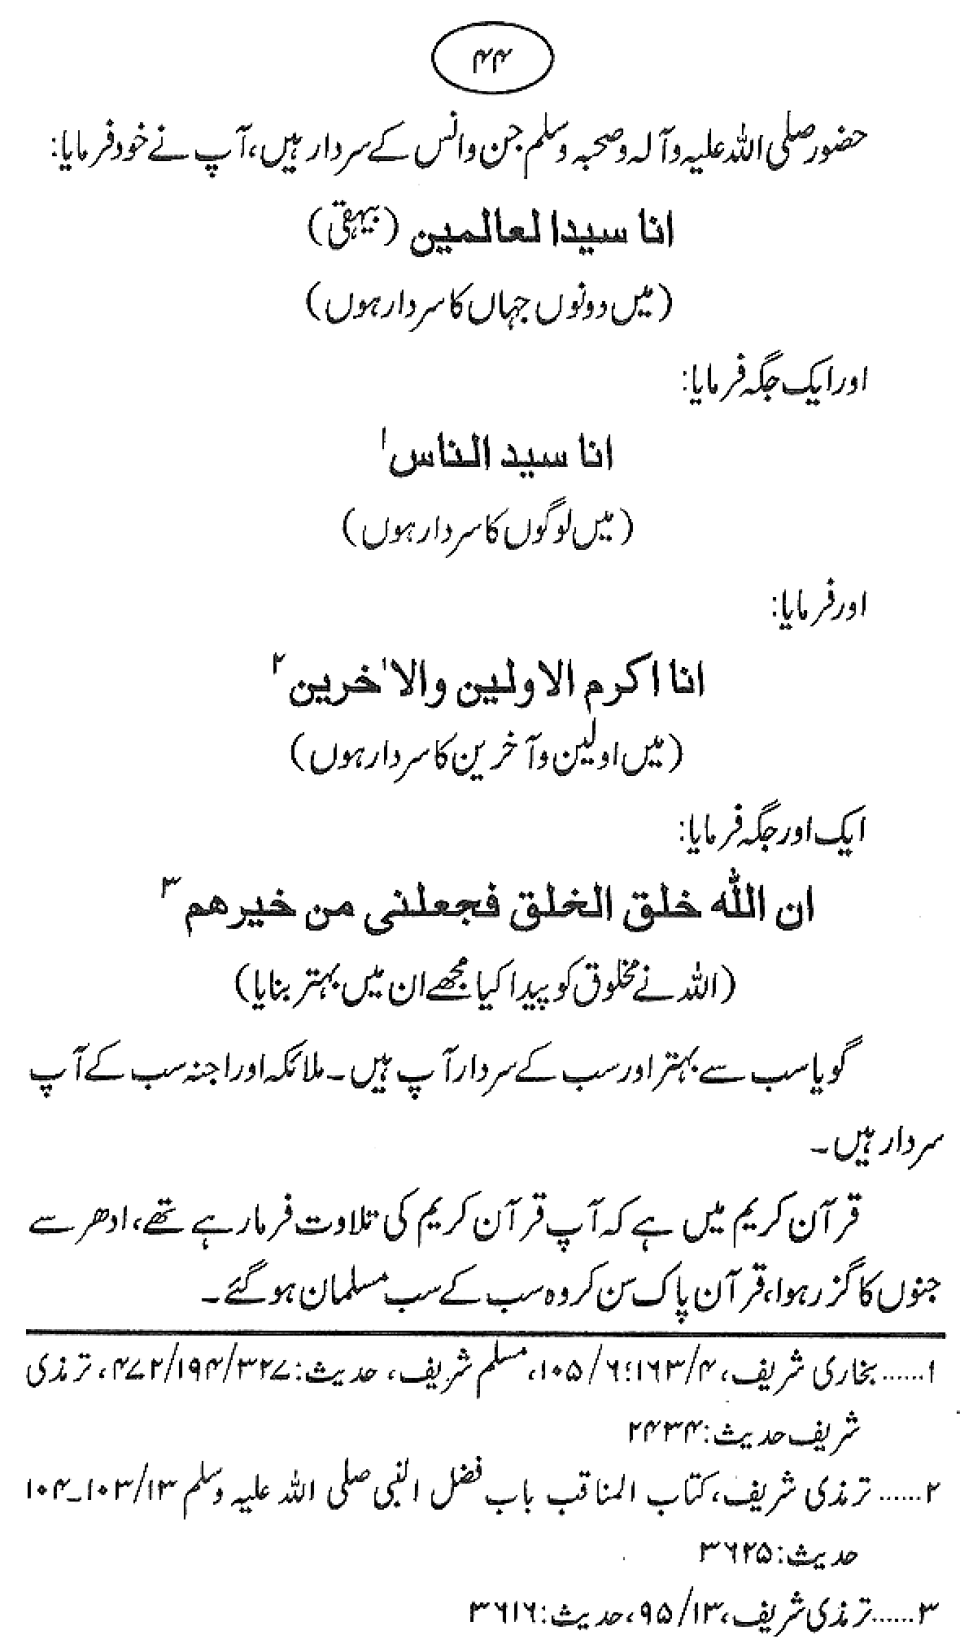 ۴۴
حضور صلی اللہ علیہ وآلہ وصحبہ وسلم جن وانس کے سردار ہیں، آپ نے خود فرمایا:
انا سیدا لعالمین (بیہقی)
(میں دونوں جہاں کا سردار ہوں)
اور ایک جگہ فرمایا:
انا سید الناس ۱
(میں لوگوں کا سردار ہوں)
اور فرمایا:
انا اکرم الاولین والاٰخرین ۲
(میں اولین وآخرین کا سردار ہوں)
ایک اور جگہ فرمایا:
ان اللہ خلق الخلق فجعلنی من خیرھم ۳
(اللہ نے مخلوق کو پیدا کیا مجھے ان میں بہتر بنایا)
گویا سب سے بہتر اور سب کے سردار آپ ہیں۔ ملائکہ اور اجنہ سب کے آپ
سردار ہیں۔
قرآن کریم میں ہے کہ آپ قرآن کریم کی تلاوت فرما رہے تھے، ادھر سے
جنوں کا گزر ہوا، قرآن پاک سن کر وہ سب کے سب مسلمان ہو گئے۔
۱...... بخاری شریف، ۴/۱۶۳؛ ۶/۱۰۵، مسلم شریف، حدیث: ۳۲۷/۱۹۴/۴۷۲، ترمذی
شریف حدیث: ۲۴۳۴
۲...... ترمذی شریف، کتاب المناقب باب فضل النبی صلی اللہ علیہ وسلم ۱۳/۱۰۳۔۱۰۴
حدیث: ۳۶۲۵
۳...... ترمذی شریف، ۱۳/۹۵، حدیث: ۳۶۱۶